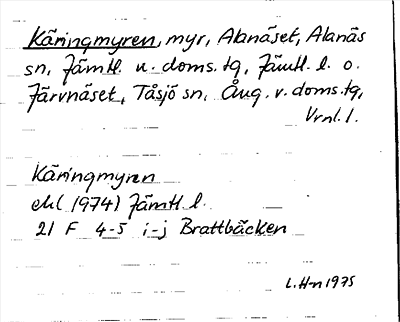 Käringmyren, myr, Alanäset, Alanäs
sn, Jämtl. n. doms.tg, Jämtl. l. o.
Järvnäset, Tåsjö sn, Ång. v. doms.tg,
Vrnl. l.
Käringmyren
ekl (1974) Jämtl l.
21 F 4-5 i-j Brattbäcken
L.H-n 1975